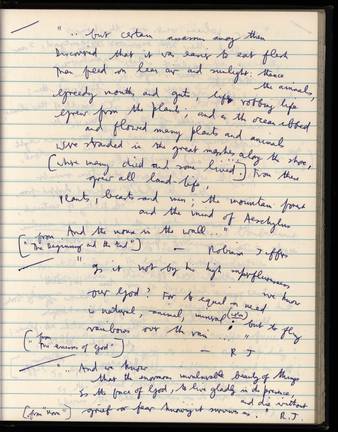 ". . but certain among them
Discovered that it was easier to eat flesh
Than feed on lean air and sunlight: thence
the animals,
Greedy mouths and guts, life robbing life
Grew from the plants; and as the ocean ebbed
and flowed many plants and animals
Were stranded in the great marshes along the shore,
[Where many died and some lived.] From these
grew all land-life,
Plants, beasts and men; the mountain forest
and the mind of Aeschylus
And the mouse in the wall . . ."
[from "The Beginning and the End"] — Robinson Jeffers
"Is it not by his high superfluousness
we know
our God? For to equal a need
is natural, animal, mineral: but to fling
rainbows over the rain . . . "
[from "The excesses of God"]
— R J
"And we know
that the enormous invulnerable beauty of things
Is the face of God, to live gladly in its presence,
and die without
grief or fear knowing it survives us." R. J.
[from "Nova"]